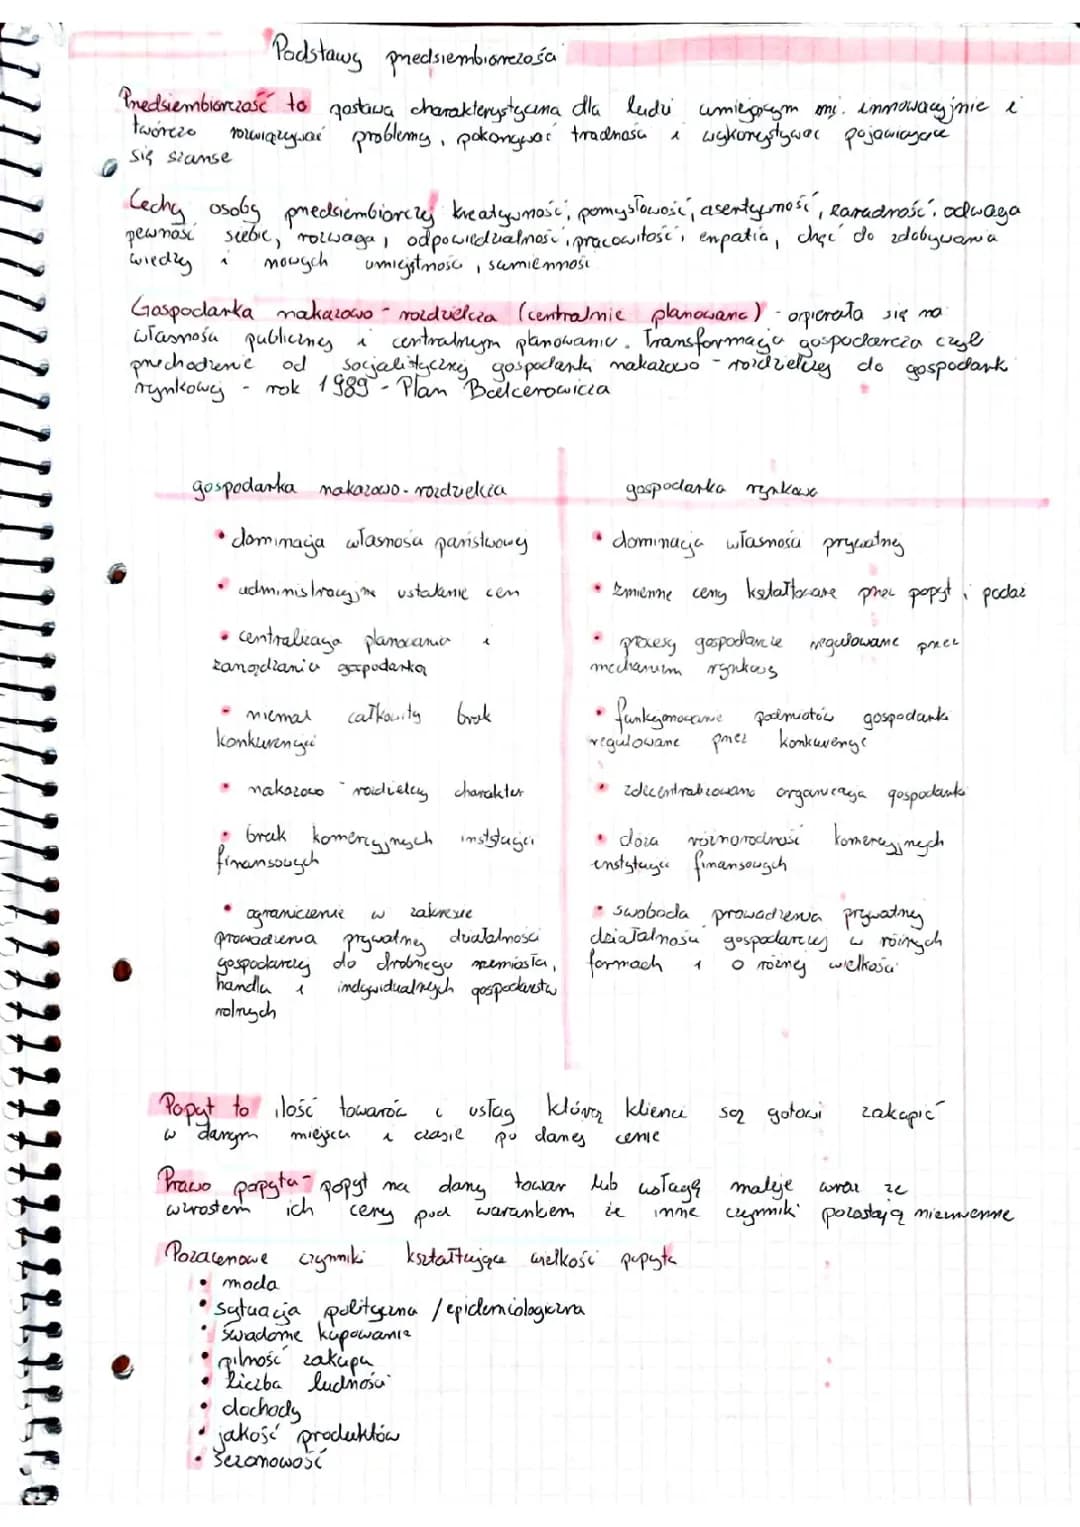 Podstawy przedsiębiorczości
Przedsiębiorczość to postawa charakterystyczna dla ludzi umiejącym m.in. innowacyjnie i
twórczo rozwiązywać problemy, pokonywać trudności i wykorzystywać pojawiające
się szanse
Cechy osoby przedsiębiorczej kreatywność, pomysłowość, asertywność, zaradność, odwaga
pewność siebie, rozwaga, odpowiedzialność, pracowitość, empatia, chęć do zdobywania
wiedzy i nowych umiejętności, sumienność
Gospodarka nakazowo - rozdzielcza (centralnie planowana) - opierała się na
własności publicznej i centralnym planowaniu. Transformacja gospodarcza czyli
przechodzenie od socjalistycznej gospodarki nakazowo - rozdzielczej do gospodarki
rynkowej - rok 1989 - Plan Balcerowicza
gospodarka nakazowo-rozdzielcza
• dominacja własności państwowej
• administracyjne ustalanie cen
• centralizacja planowania i
zarządzania gospodarką
• niemal całkowity brak
konkurencji
• nakazowo - rozdzielczy charakter
• brak komercyjnych instytucji
finansowych
• ograniczenie w zakresie
prowadzenia prywatnej działalności
gospodarczej do drobnego rzemiosła,
handlu i indywidualnych gospodarstw
rolnych
gospodarka rynkowa
• dominacja własności prywatnej
• zmienne ceny kształtowane przez popyt i podaż
• procesy gospodarcze regulowane przez
mechanizm rynkowy
• funkcjonowanie podmiotów gospodarki
regulowane przez konkurencję
• zdecentralizowana organizacja gospodarki
• duża różnorodność komercyjnych
instytucji finansowych
• swoboda prowadzenia prywatnej
działalności gospodarczej w różnych
formach i o różnej wielkości
Popyt to ilość towarów i usług którą klienci są gotowi zakupić
w danym miejscu i czasie po danej cenie
Prawo popytu - popyt na dany towar lub usługę maleje wraz ze
wzrostem ich ceny pod warunkiem że inne czynniki pozostają niezmienne
Pozacenowe czynniki kształtujące wielkość popytu
• moda
• sytuacja polityczna / epidemiologiczna
• świadome kupowanie
• pilność zakupu
• liczba ludności
• dochody
• jakość produktów
• sezonowość